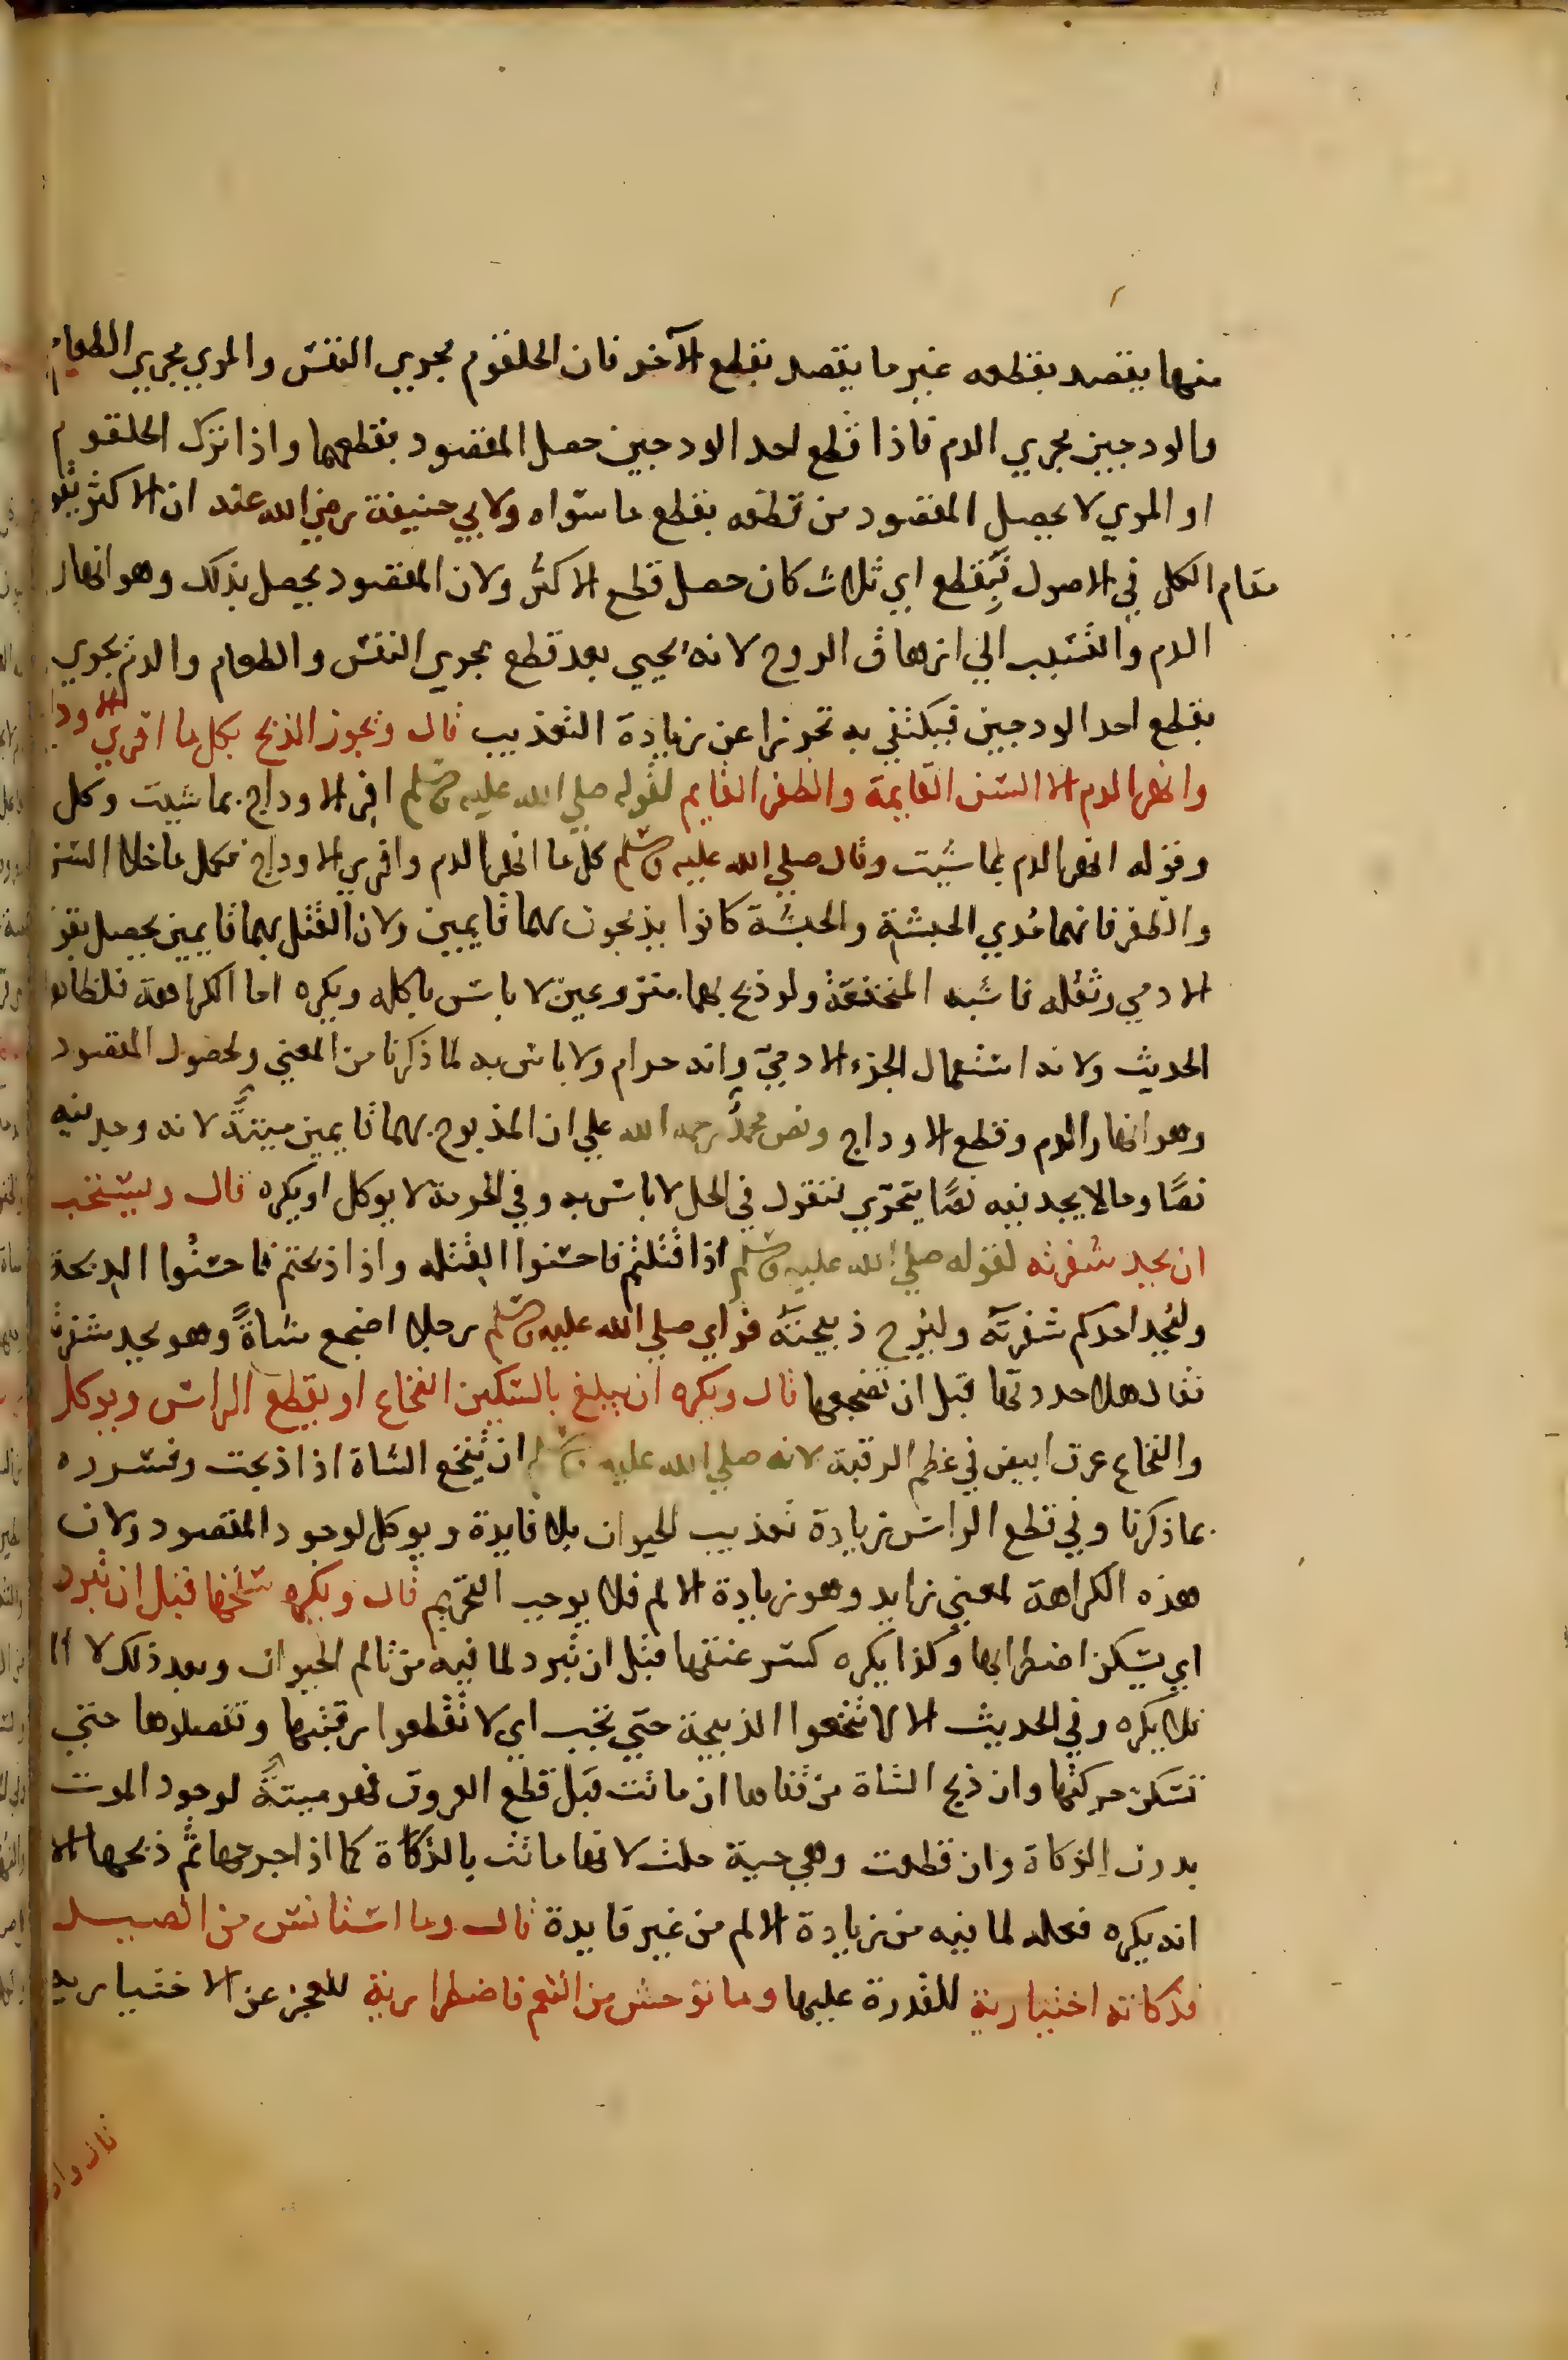 منها يقصد بقطعه غير ما يقصد بقطع الآخر فان الحلقوم مجري النفس والمري مجري الطعام
والودجين مجري الدم فاذا قطع احد الودجين حصل المقصود بقطعهما واذا ترك الحلقوم
او المري لا يحصل المقصود من قطعه بقطع ما سواه ولابي حنيفة رضي الله عنه ان الاكثر يقو
مقام الكل في الاصول فيقطع اي ثلاث كان حصل قطع الاكثر ولان المقصود يحصل بذلك وهو انهار
الدم والتسبب الي ازهاق الروح لانه يحيي بعد قطع مجري النفس والطعام والدم يجري
بقطع احد الودجين فيكتفي به تحرزا عن زيادة التعذيب قال ويجوز الذبح بكل ما افري الاودا
وانهر الدم الا السن القايمة والظفر القايم لقوله صلي الله عليه وسلم افر الاوداج بما شيت وكل
وقوله انهر الدم بما شيت وقال صلي الله عليه وسلم كل ما انهر الدم وافري الاوداج فكل ما خلا السن
والظفر فانهما مدي الحبشة والحبشة كانوا يذبحون بهما قايمين ولان القتل بهما قايمين يحصل بقو
الادمي وثقله فاشبه المنخنقة ولو ذبح بهما منزوعين لا باس باكله ويكره اما الكراهة فلظاهر
الحديث ولانه استعمال الجزء الادمي وانه حرام ولا باس به لما ذكرنا من المعني ولحصول المقصود
وهو انهار الدم وقطع الاوداج ونص محمد رحمه الله علي ان المذبوح بهما قايمين ميتة لانه وجد فيه
نصا وما لا يجد فيه نصا يتحري فنقول في الحل لا باس به وفي الحرمة لا يوكل او يكره قال ويستحب
ان يحد شفرته لقوله صلي الله عليه وسلم اذا قتلتم فاحسنوا القتله واذا ذبحتم فاحسنوا الذبحة
وليحد احدكم شفرته وليرح ذبيحته فراي صلي الله عليه وسلم رجلا اضجع شاة وهو يحد شفرته
فقال هلا حددتها قبل ان تضجعها قال ويكره ان يبلغ بالسكين النخاع او يقطع الراس ويوكل
والنخاع عرق ابيض في عظم الرقبة لانه صلي الله عليه وسلم ان ينخع الشاة اذا ذبحت وفسروه
بما ذكرنا وفي قطع الراس زيادة تعذيب للحيوان بلا فايدة ويوكل لوجود المقصود ولان
هذه الكراهة لمعني زايد وهو زيادة الالم فلا يوجب التحريم قال ويكره سلخها قبل ان تبرد
اي يسكن اضطرابها وكذا يكره كسر عنقها قبل ان تبرد لما فيه من تالم الحيوان وبعد ذلك لا الم
فلا يكره وفي الحديث الا لا تنخعوا الذبيحة حتي تجب اي لا تقطعوا رقبتها وتفصلوها حتي
تسكن حركتها وان ذبح الشاة من قفاها ان ماتت قبل قطع العروق فهو ميتة لوجود الموت
بدون الزكاة وان قطعت وهي حية حلت لانها ماتت بالذكاة كما اذا جرحها ثم ذبحها الا
انه يكره فعله لما فيه من زيادة الالم من غير فايدة قال وما استانس من الصيد
فذكاته اختيارية للقدرة عليها وما توحش من النعم فاضطرارية للعجز عن الاختيارية
قال وا